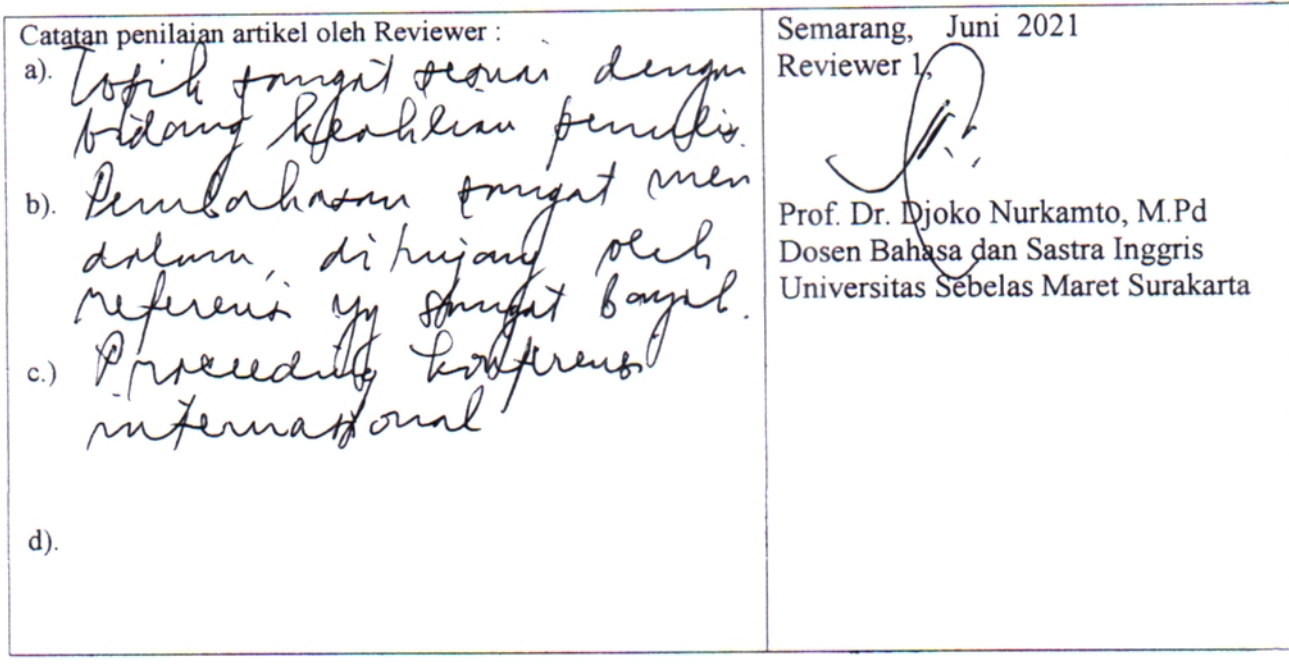 Catatan penilaian artikel oleh Reviewer :
a). Topik sangat sesuai dengan
bidang keahlian penulis.
b). Pembahasan sangat men
dalam, ditunjang oleh
referensi yg sangat banyak.
c.) Proceeding konferensi
internasional
d).
Semarang, Juni 2021
Reviewer 1,
Prof. Dr. Djoko Nurkamto, M.Pd
Dosen Bahasa dan Sastra Inggris
Universitas Sebelas Maret Surakarta